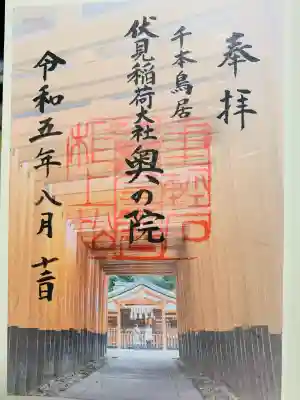 奉拝
千本鳥居
伏見稲荷大社
奥の院
令和五年八月十三日